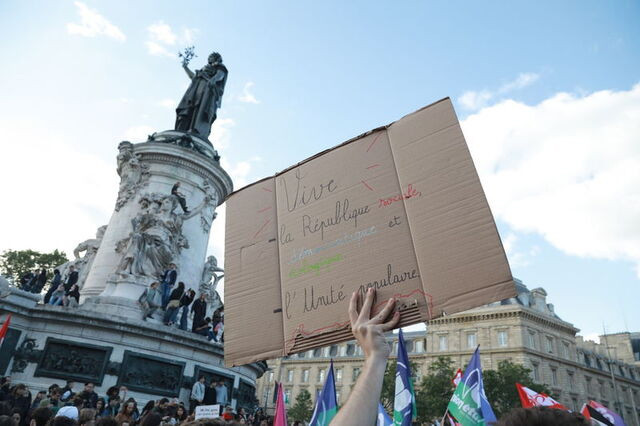 Vive
la République sociale,
démocratique et
écologique
l'Unité populaire